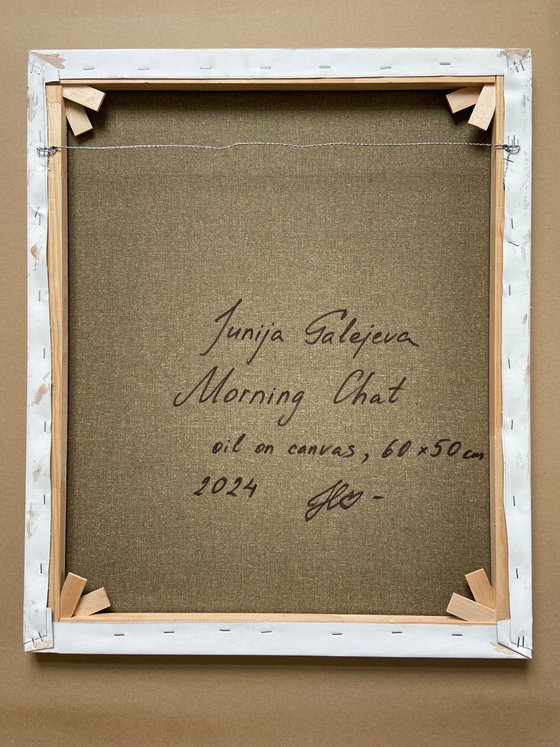 Junija Galejeva
Morning Chat
oil on canvas, 60 × 50 cm
2024